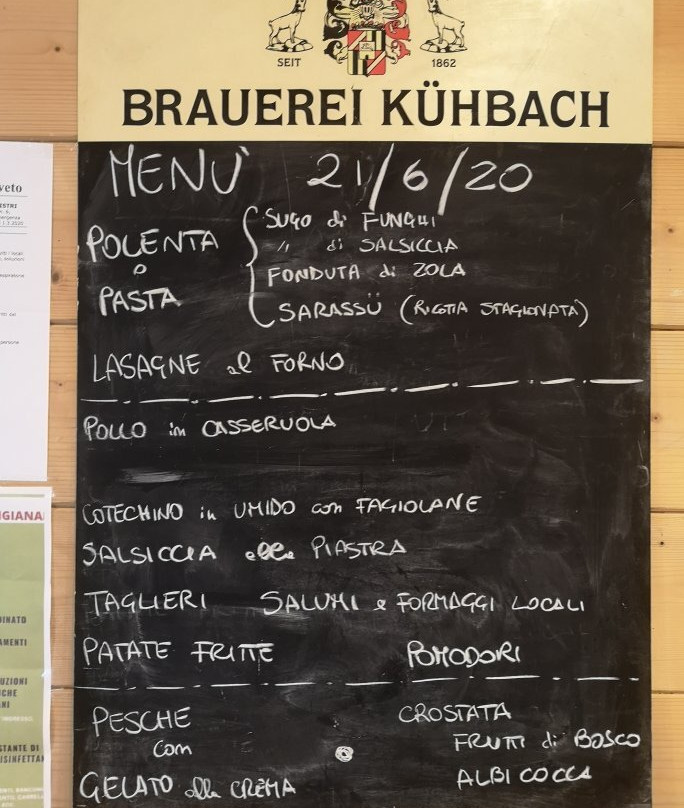 SEIT 1862
BRAUEREI KÜHBACH
MENU' 21/6/20
POLENTA
o
PASTA
SUGO di FUNGHI
" di SALSICCIA
FONDUTA di ZOLA
SARASSÜ (RICOTTA STAGIONATA)
LASAGNE al FORNO
POLLO in CASSERUOLA
COTECHINO in UMIDO con FAGIOLANE
SALSICCIA alla PIASTRA
TAGLIERI SALUMI e FORMAGGI LOCALI
PATATE FRITTE POMODORI
PESCHE
con
GELATO alla CRÈMA
CROSTATA
FRUTTI di BOSCO
ALBICOCCA
veto
IGIANA